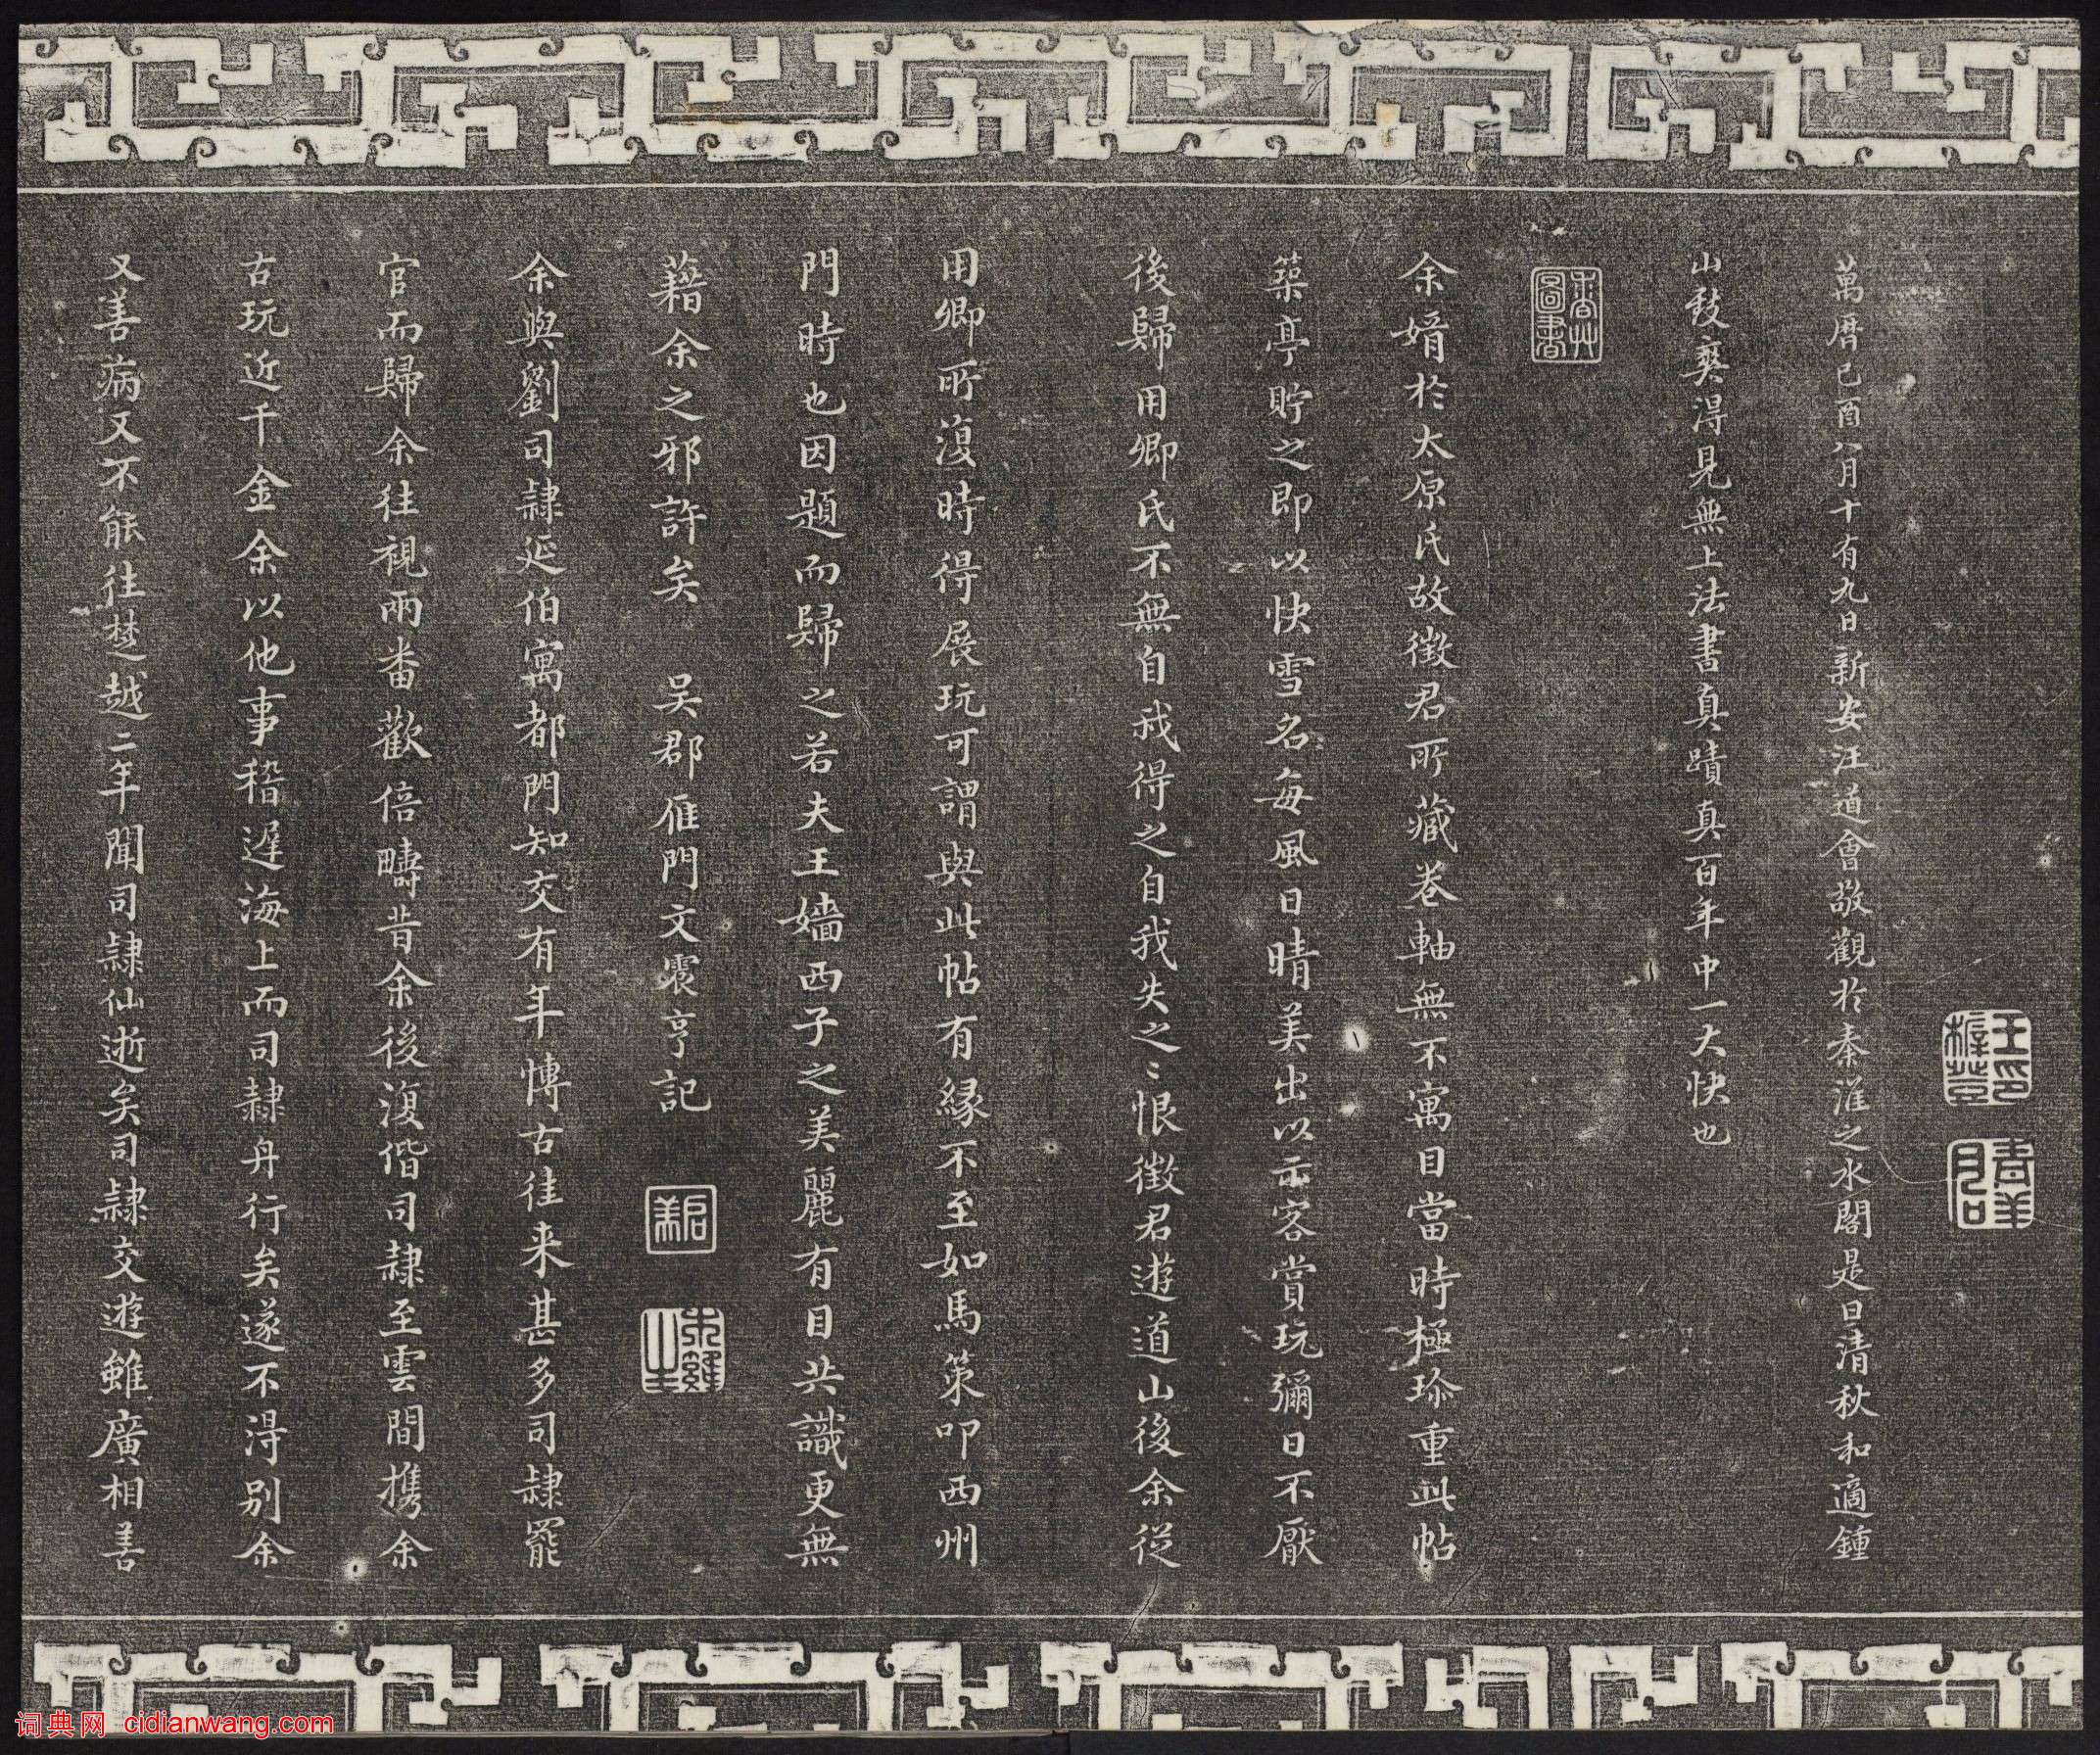 萬曆己酉八月十有九日新安汪道會敬觀於秦淮之水閣是日清秋和適鍾
山致爽淂見無上法書真蹟真百年中一大快也
余婿於太原氏故徵君所藏卷軸無不寓目當時極珎重此帖
築亭貯之即以快雪名每風日晴美出以示客賞玩彌日不厭
後歸用卿氏不無自我得之自我失之〻恨徵君遊道山後余從
用卿所復時得展玩可謂與此帖有緣不至如馬策叩西州
門時也因題而歸之若夫王嬙西子之美麗有目共識更無
藉余之邪許矣 吳郡雁門文震亨記
余與劉司隷延伯寓都門知交有年博古往来甚多司隷罷
官而歸余往視兩番歡倍疇昔余後復偕司隷至雲間携余
古玩近千金余以他事稽遲海上而司隷舟行矣遂不淂別余
又善病又不能往楚越二年聞司隷仙逝矣司隷交遊雖廣相善
词典网 cidianwang.com